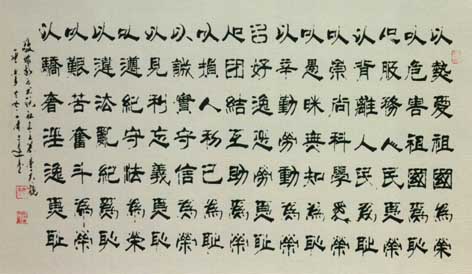 以熱愛祖國為榮
以危害祖國為恥
以服務人民為榮
以背離人民為恥
以崇尚科學為榮
以愚昧無知為恥
以辛勤勞動為榮
以好逸惡勞為恥
以团結互助為榮
以損人利己為恥
以誠實守信為榮
以見利忘義為恥
以遵紀守法為榮
以違法亂紀為恥
以艱苦奮斗為榮
以驕奢淫逸為恥